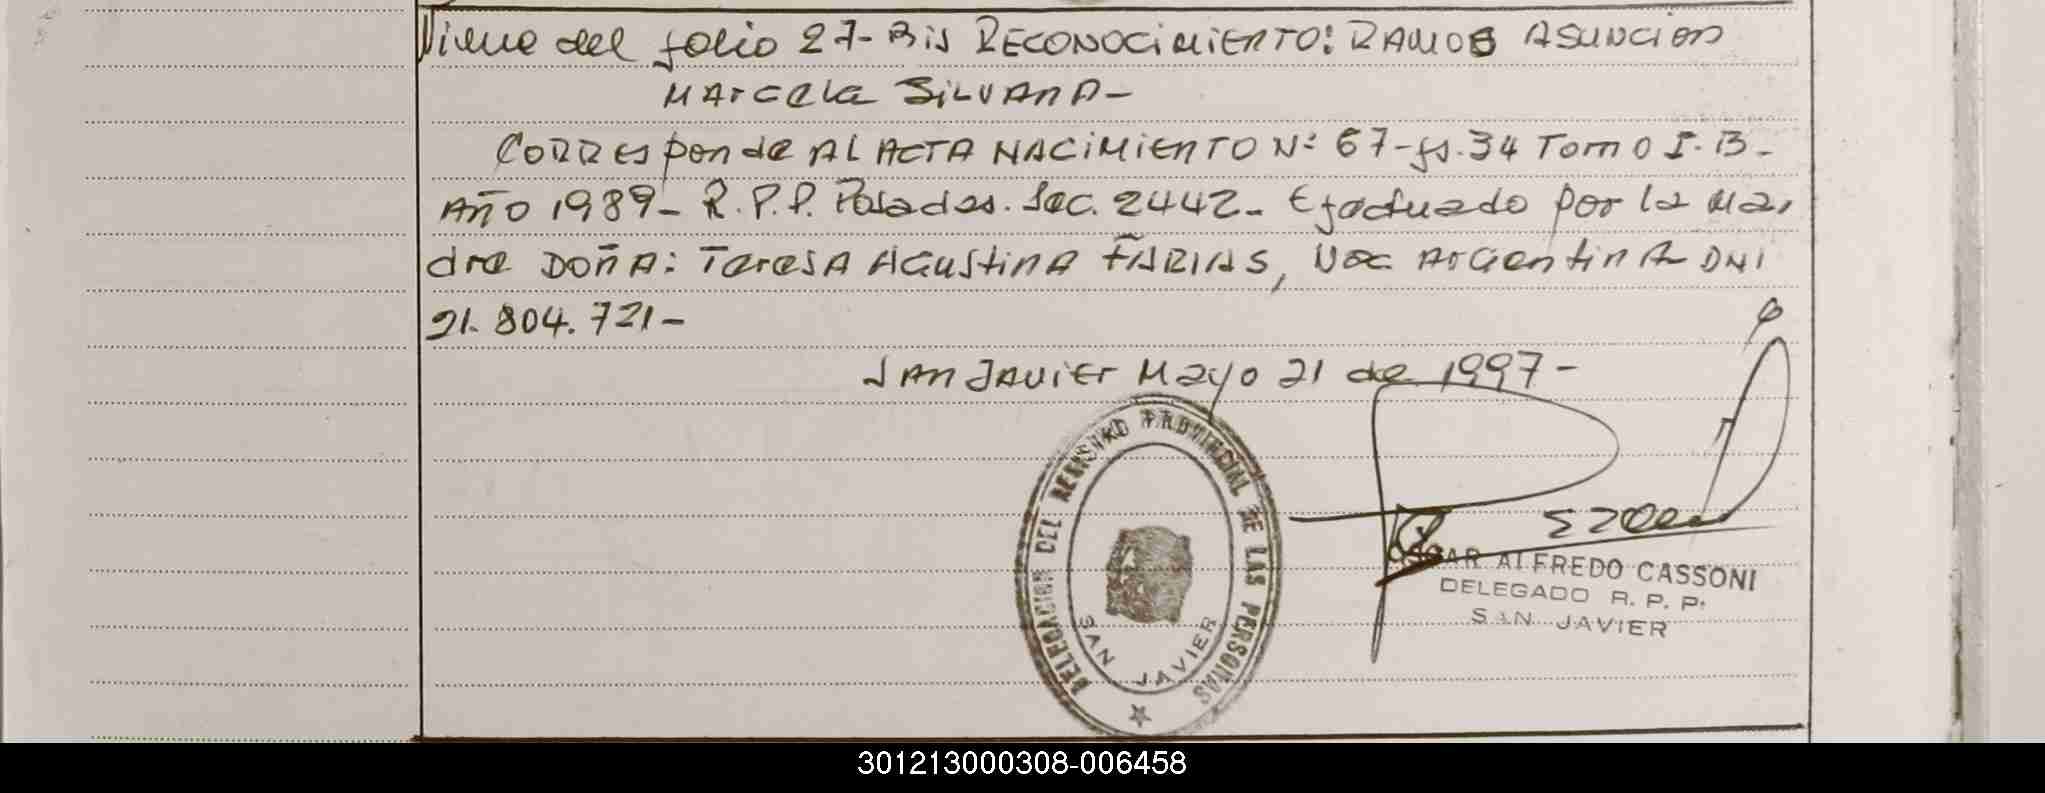 Viene del folio 27-Bis RECONOCIMIENTO: RAMOS ASUNCION
MARCELA SILVANA-
CORRESponde AL ACTA NACIMIENTO Nº 67-fs.34 Tomo I.B-
AÑO 1989- R.P.P. Posadas. Sec. 2442- Efectuado por la Ma,
dre DOÑA: Teresa Agustina FARIAS, Nac Argentina DNI
21.804.721-
SAN JAVIER Mayo 21 de 1997-
DELEGACION DEL REGISTRO PROVINCIAL DE LAS PERSONAS
SAN JAVIER
OSCAR ALFREDO CASSONI
DELEGADO R. P. P.
SAN JAVIER
301213000308-006458